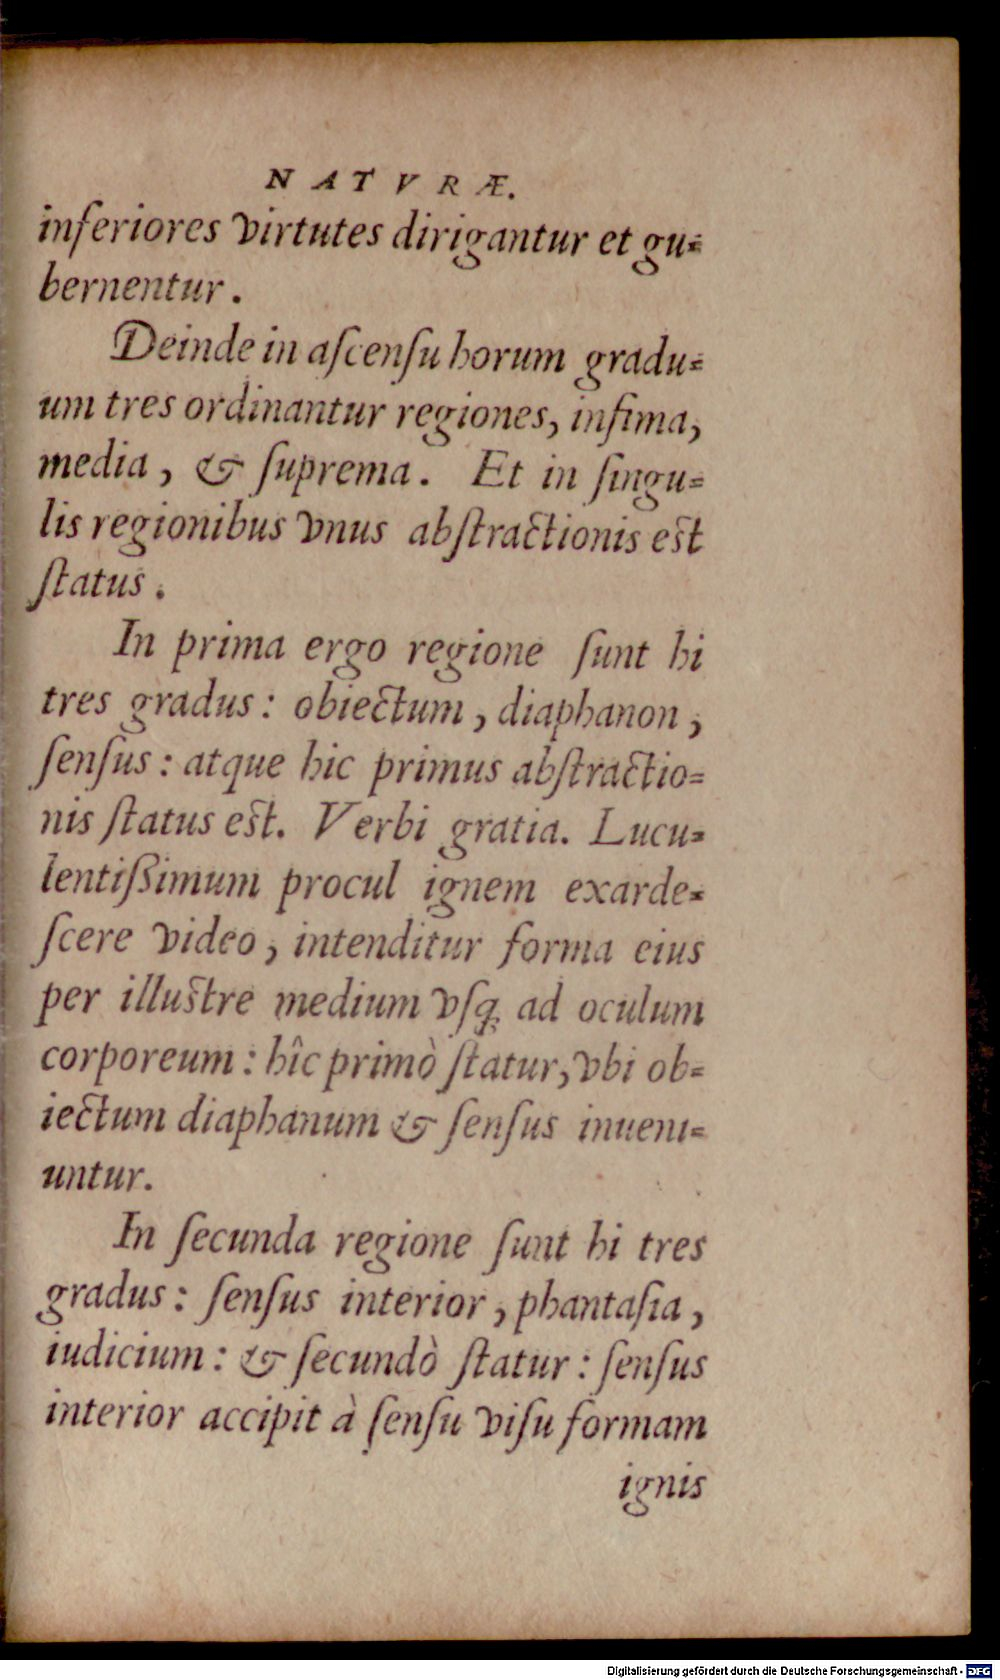 NATVRÆ.
inferiores virtutes dirigantur et gu-
bernentur.
Deinde in aſcenſu horum gradu-
um tres ordinantur regiones, infima,
media, & ſuprema. Et in ſingu-
lis regionibus vnus abſtractionis est
ſtatus.
In prima ergo regione ſunt hi
tres gradus: obiectum, diaphanon,
ſenſus: atque hic primus abſtractio-
nis ſtatus est. Verbi gratia. Lucu-
lentiſſimum procul ignem exarde-
ſcere video, intenditur forma eius
per illustre medium vſq; ad oculum
corporeum: hîc primò ſtatur, vbi ob-
iectum diaphanum & ſenſus inueni-
untur.
In ſecunda regione ſunt hi tres
gradus: ſenſus interior, phantaſia,
iudicium: & ſecundò ſtatur: ſenſus
interior accipit à ſenſu viſu formam
ignis
Digitalisierung gefördert durch die Deutsche Forschungsgemeinschaft - DFG